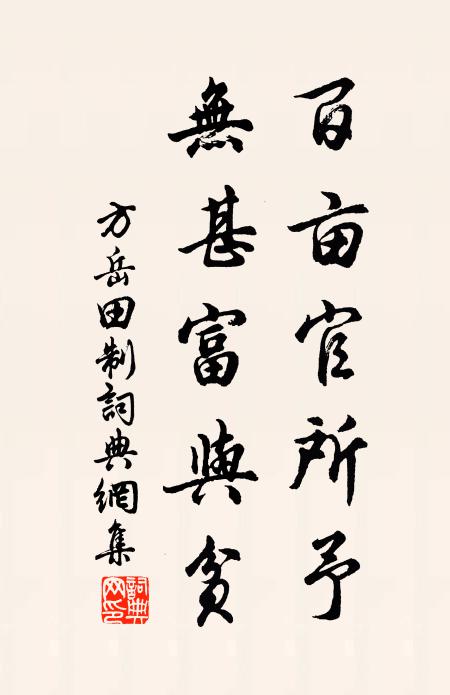 百亩官所予
無甚富與貧
方岳田制詞典網集
詞典網印